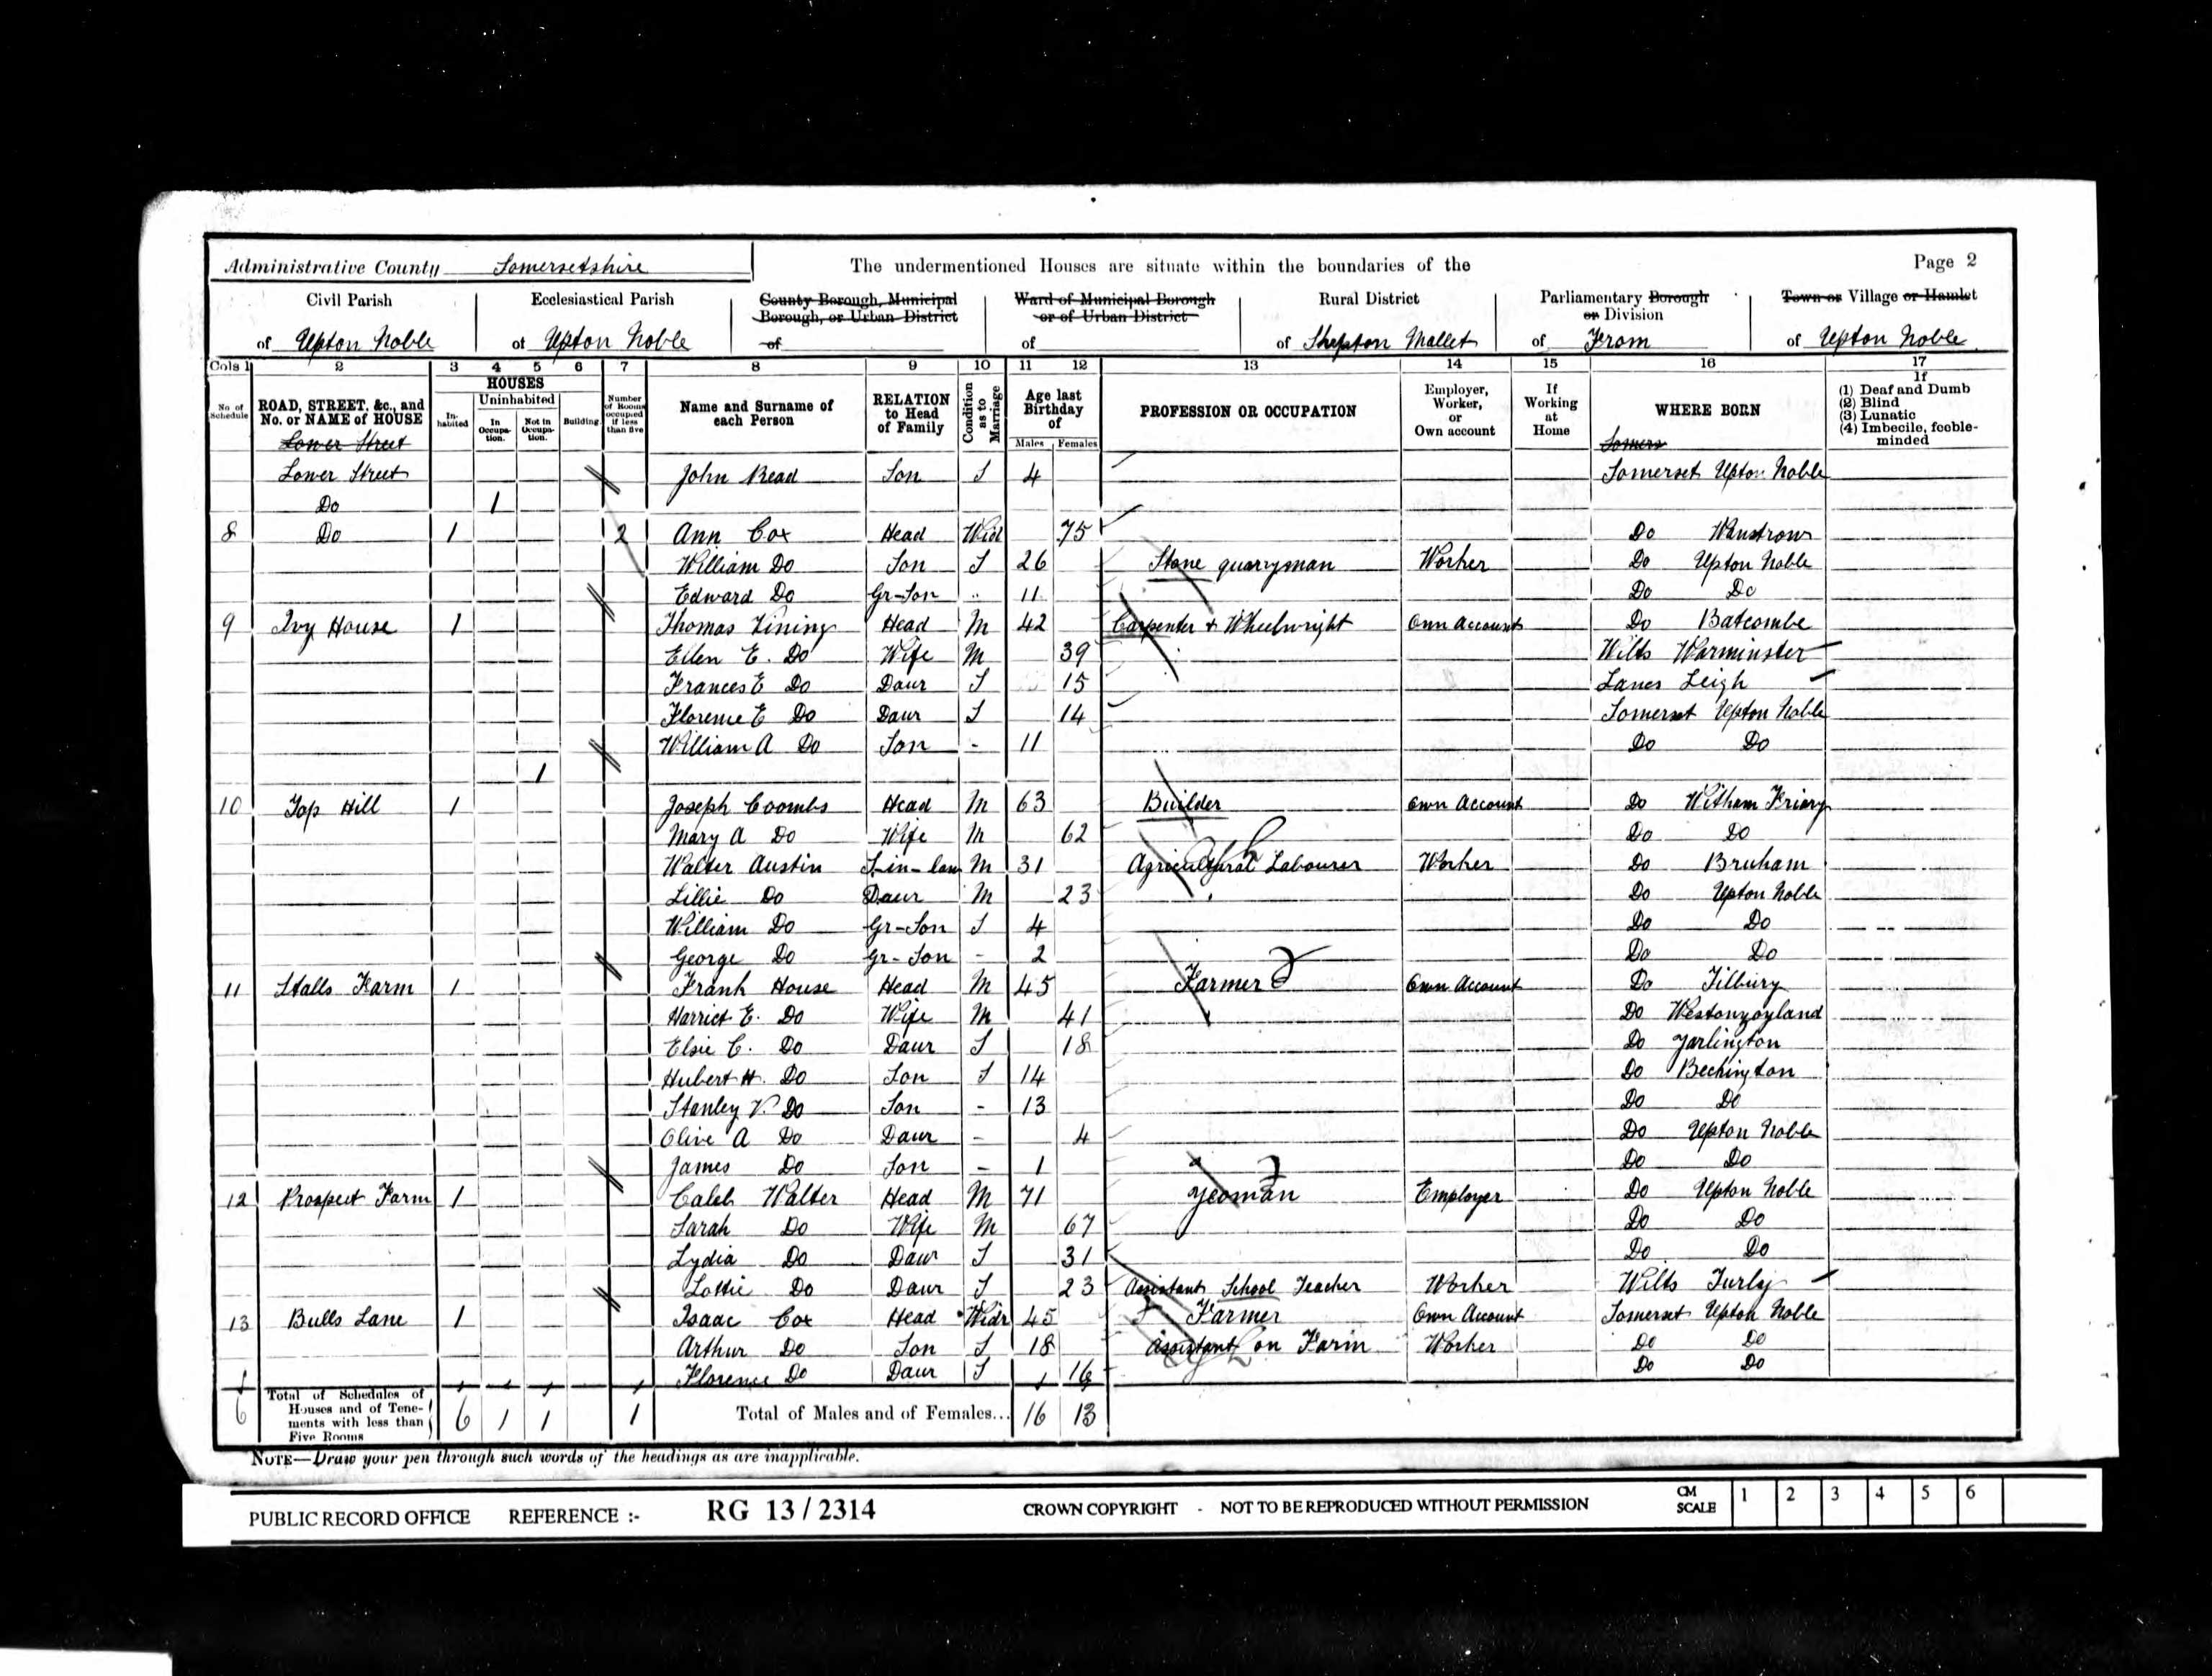 Administrative County Somersetshire The undermentioned Houses are situate within the boundaries of the Page 2
Civil Parish Ecclesiastical Parish County Borough, Municipal Borough, or Urban District Ward of Municipal Borough or of Urban District Rural District Parliamentary Borough or Division Town or Village or Hamlet
of Upton Noble of Upton Noble of of of Shepton Mallet of From of Upton Noble
Cols 1 2 3 4 5 6 7 8 9 10 11 12 13 14 15 16 17
No of Schedule ROAD, STREET, &c., and No. or NAME of HOUSE HOUSES In-habited Uninhabited In Occupa-tion. Not in Occupa-tion. Building. Number of Rooms occupied if less than five Name and Surname of each Person RELATION to Head of Family Condition as to Marriage Age last Birthday of Males Females PROFESSION OR OCCUPATION Employer, Worker, or Own account If Working at Home WHERE BORN If (1) Deaf and Dumb (2) Blind (3) Lunatic (4) Imbecile, feeble-minded
Lower Street Somers
Lower Street John Read Son S 4 Somerset Upton Noble
Do 1
8 Do 1 2 Ann Cox Head Wid 75 Do Wanstrow
William Do Son S 26 Stone quarryman Worker Do Upton Noble
Edward Do Gr-Son " 11 Do Do
9 Ivy House 1 Thomas Vining Head M 42 Carpenter + Wheelwright Own Account Do Batcombe
Ellen E. Do Wife M 39 Wilts Warminster
Frances E Do Daur S 15 Lancs Leigh
Florence E Do Daur S 14 Somerset Upton Noble
William A Do Son - 11 Do Do
1
10 Top Hill 1 Joseph Coombs Head M 63 Builder Own Account Do Witham Friary
Mary A Do Wife M 62 Do Do
Walter Austin S-in-law M 31 Agricultural Labourer Worker Do Bruham
Lillie Do Daur M 23 Do Upton Noble
William Do Gr-Son S 4 Do Do
George Do Gr-Son - 2 Do Do
11 Stalls Farm 1 Frank House Head M 45 Farmer Own Account Do Tilbury
Harriet E. Do Wife M 41 Do Westonzoyland
Elsie C. Do Daur S 18 Do Yarlington
Hubert H. Do Son S 14 Do Beckington
Stanley V. Do Son - 13 Do Do
Olive A Do Daur - 4 Do Upton Noble
James Do Son - 1 Do Do
12 Prospect Farm 1 Caleb Walter Head M 71 Yeoman Employer Do Upton Noble
Sarah Do Wife M 67 Do Do
Lydia Do Daur S 31 Do Do
Lottie Do Daur S 23 Assistant School Teacher Worker Wilts Turly
13 Bulls Lane 1 Isaac Cox Head Widr 45 Farmer Own Account Somerset Upton Noble
Arthur Do Son S 18 Assistant on Farm Worker Do Do
Florence Do Daur S 16 Do Do
6 Total of Schedules of Houses and of Tene-ments with less than Five Rooms 6 1 1 1 Total of Males and of Females... 16 13
NOTE—Draw your pen through such words of the headings as are inapplicable.
PUBLIC RECORD OFFICE REFERENCE :- RG 13 / 2314 CROWN COPYRIGHT - NOT TO BE REPRODUCED WITHOUT PERMISSION CM SCALE 1 2 3 4 5 6